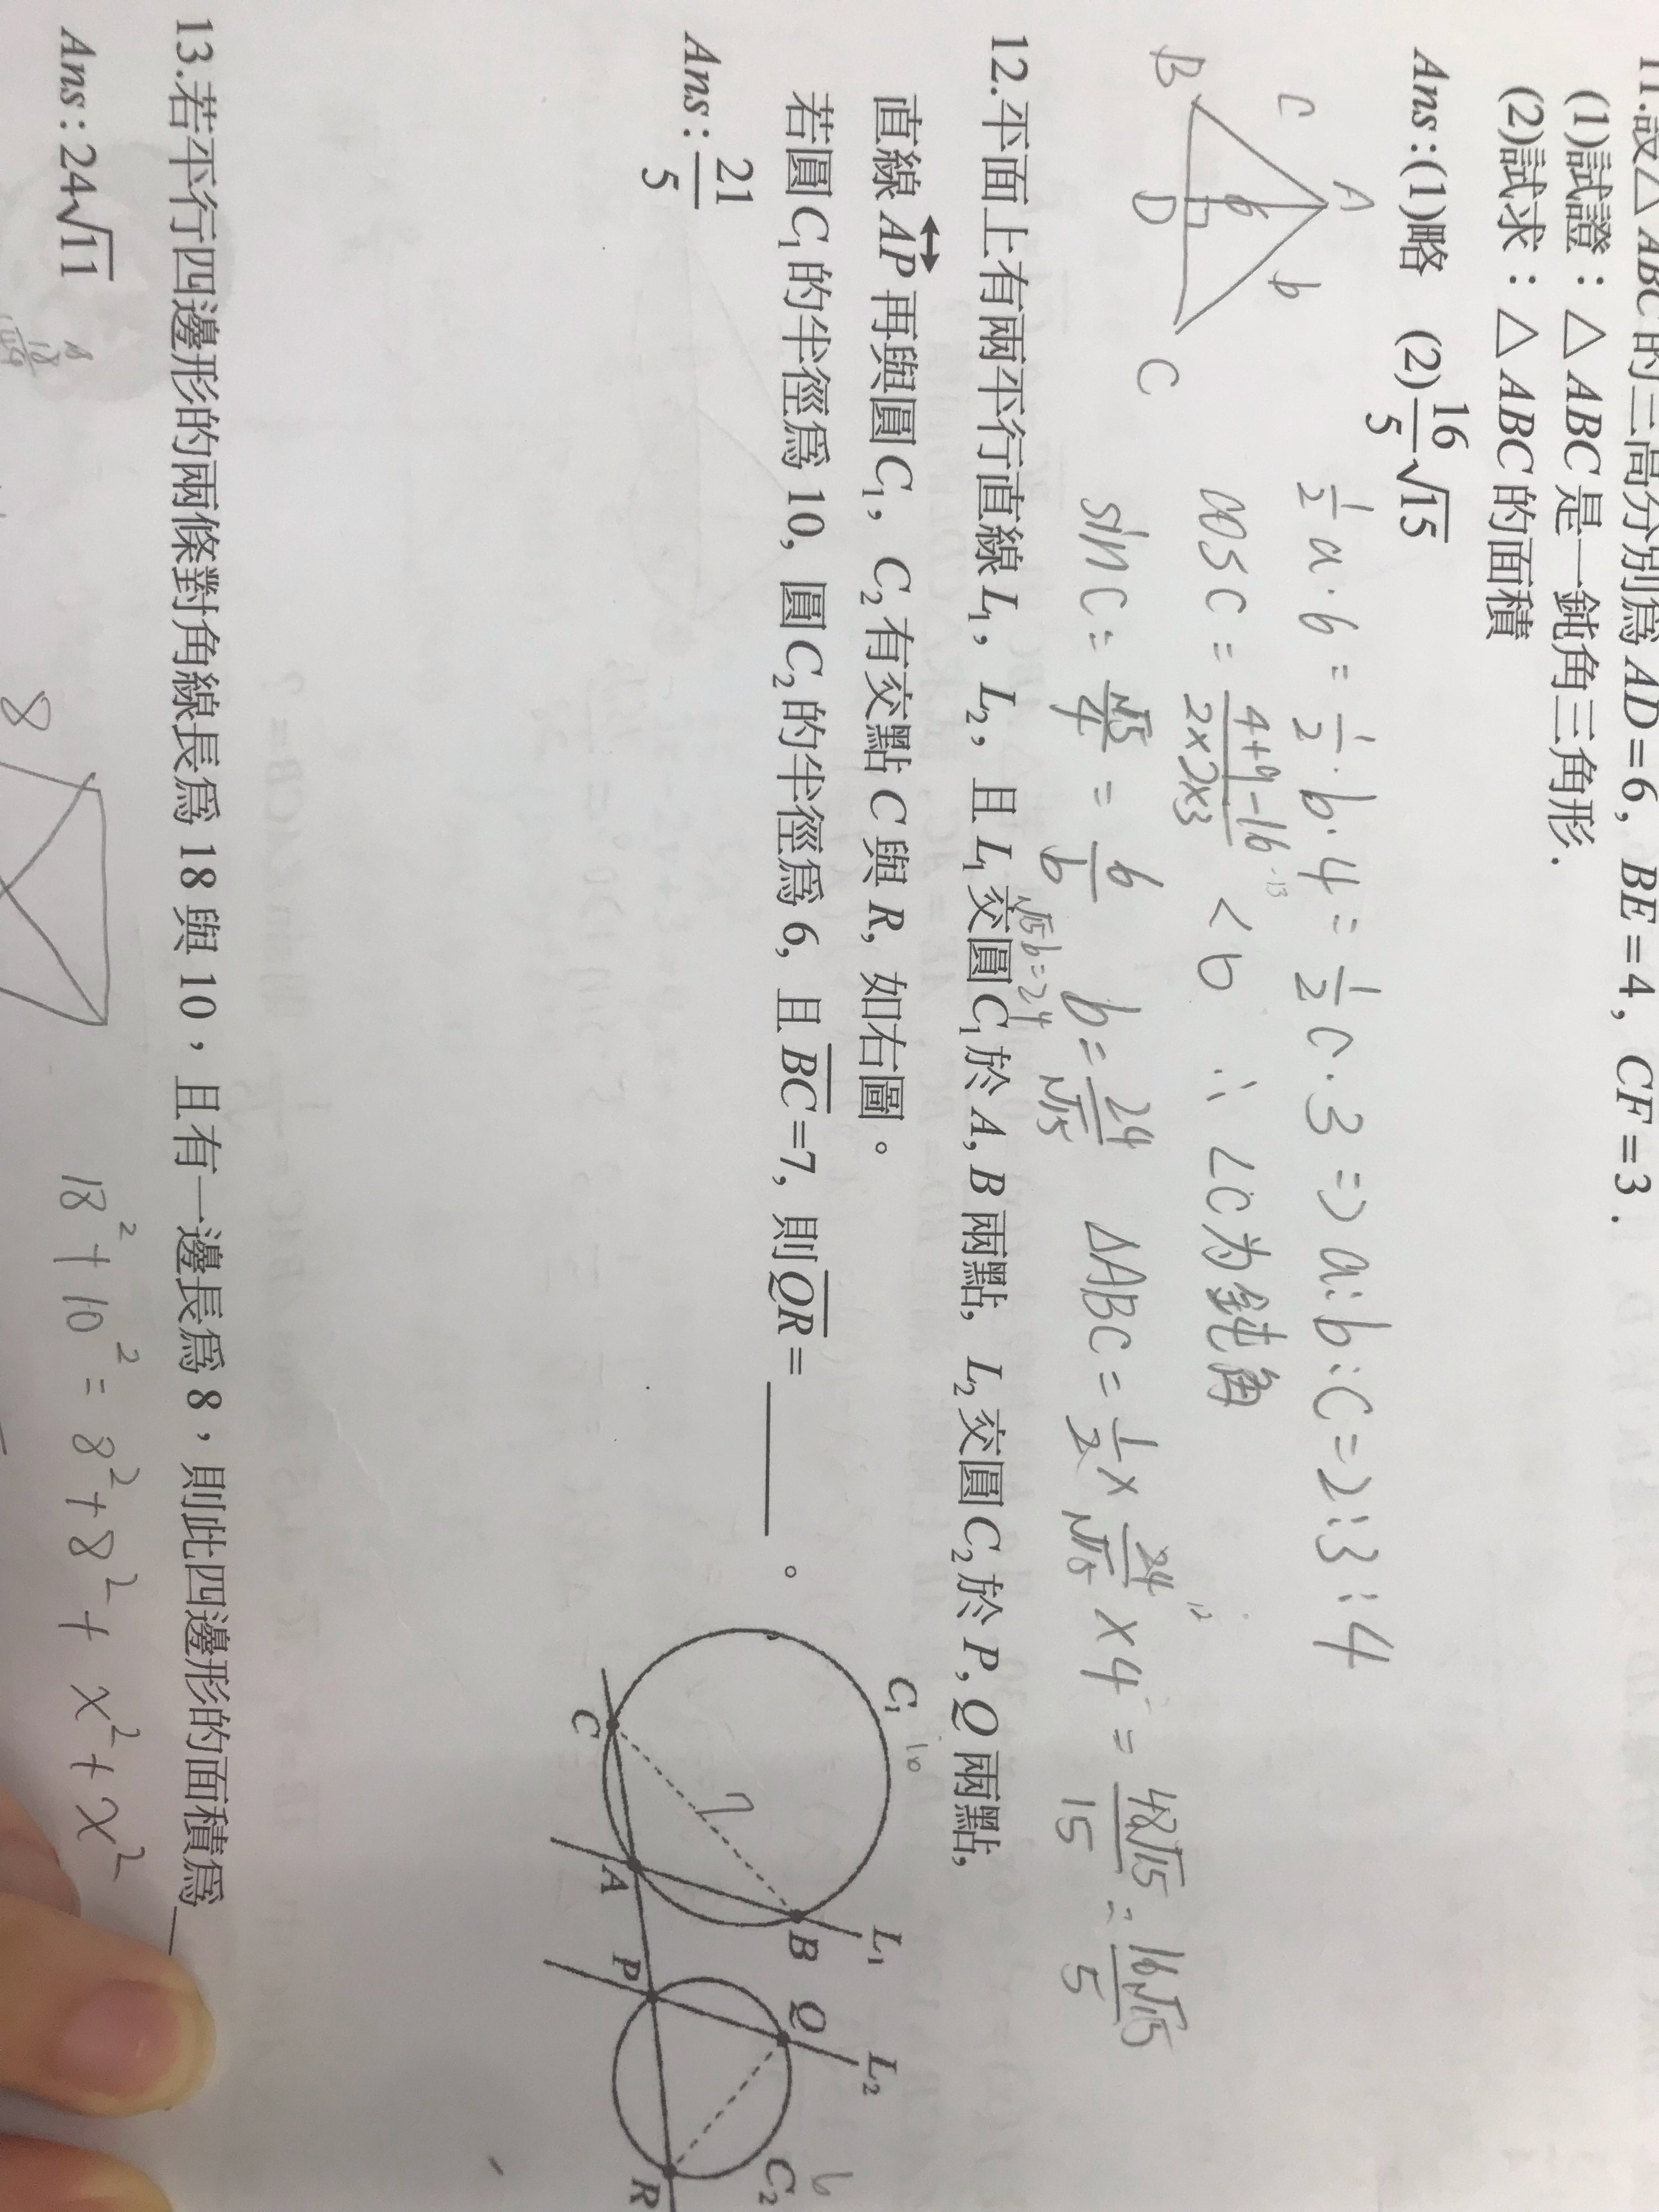 11.設△ABC的三高分別爲AD=6, BE=4, CF=3.
(1)試證：△ABC是一鈍角三角形.
(2)試求：△ABC的面積
Ans:(1)略 (2)16/5√15
A
C
b
6
B
D
C
1/2 a·6=1/2·b·4=1/2 c·3 => a:b:c=2:3:4
cosC=4+9-16/2×2×3 <0 ∴∠C为鈍角
-13
sinC=√15/4=6/b b=24/√15 △ABC=1/2×24/√15×4=48√15/15=16√15/5
√15b=24
12
12.平面上有兩平行直線L₁, L₂, 且L₁交圓C₁於A, B兩點, L₂交圓C₂於P, Q兩點,
直線AP再與圓C₁, C₂有交點C與R, 如右圖。
若圓C₁的半徑爲10, 圓C₂的半徑爲6, 且BC=7, 則QR=____。
Ans:21/5
C₁
10
L₁
B
Q
L₂
C₂
6
7
C
A
P
R
13.若平行四邊形的兩條對角線長爲18與10，且有一邊長爲8，則此四邊形的面積爲_
Ans:24√11
8
18²+10²=8²+8²+x²+x²